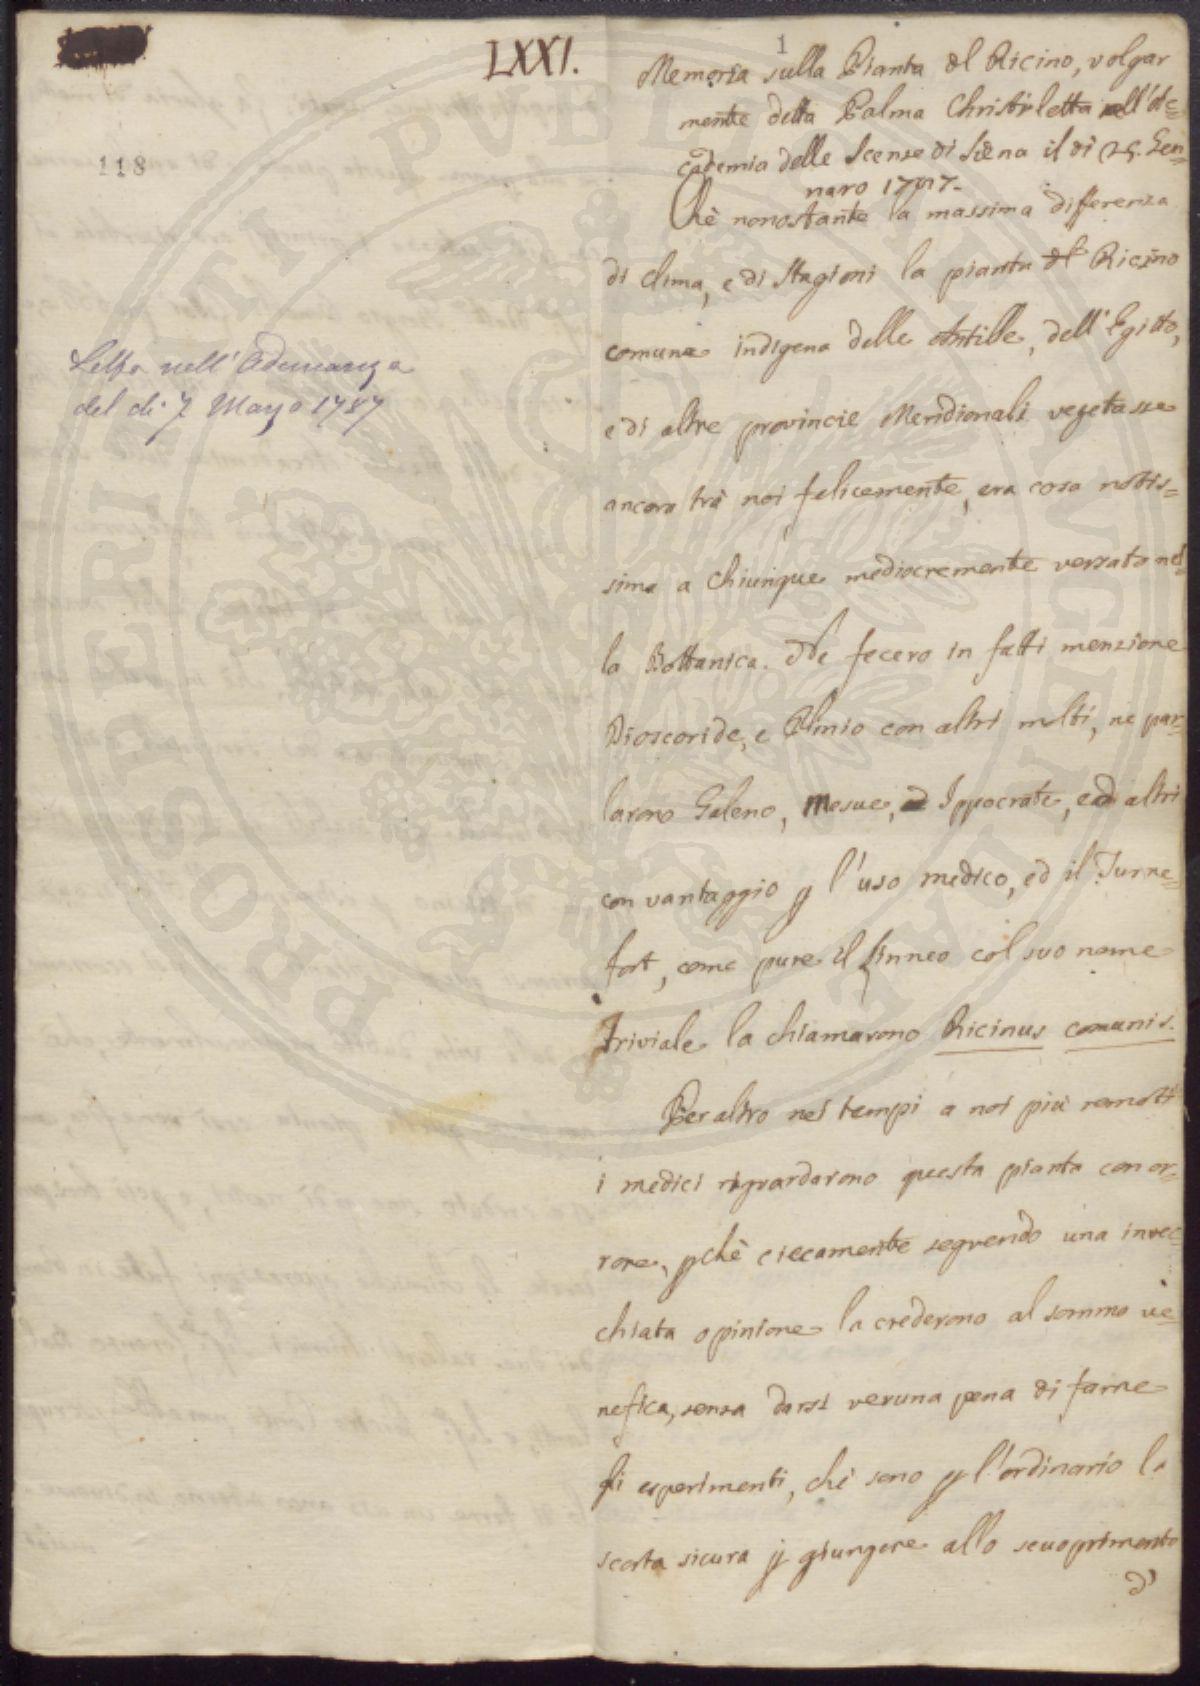 LXXI.
1
118
Letta nell'Adunanza
del dì 7 Marzo 1787
Memoria sulla Pianta del Ricino, volgar
mente detta Palma Christi letta nell'Ac=
cademia delle Scenze di Siena il dì 25. Gen=
naro 1787.
Chè nonostante la massima differenza
di clima, e di Stagioni la pianta del Ricino
comune indigena delle Antille, dell'Egitto,
e di altre provincie Meridionali vegetasse
ancora trà noi felicemente, era cosa notis=
sima a chiunque mediocremente versato nel=
la Bottanica. Ne fecero in fatti menzione
Dioscoride, e Plinio con altri molti, ne par=
larono Galeno, Mesue, Ippocrate, ed altri
con vantaggio p l'uso medico, ed il Turne=
fort, come pure il Linneo col suo nome
triviale la chiamarono Ricinus comunis.
Per altro nei tempi a noi più remoti
i medici riguardarono questa pianta con or=
rore, pchè ciecamente seguendo una invec=
chiata opinione la crederono al sommo ve=
nefica, senza darsi veruna pena di farne
li esperimenti, che sono p l'ordinario la
scorta sicura p giungere allo scuoprimento
d'
PROSPERITATI PUBLICAE AUGENDAE